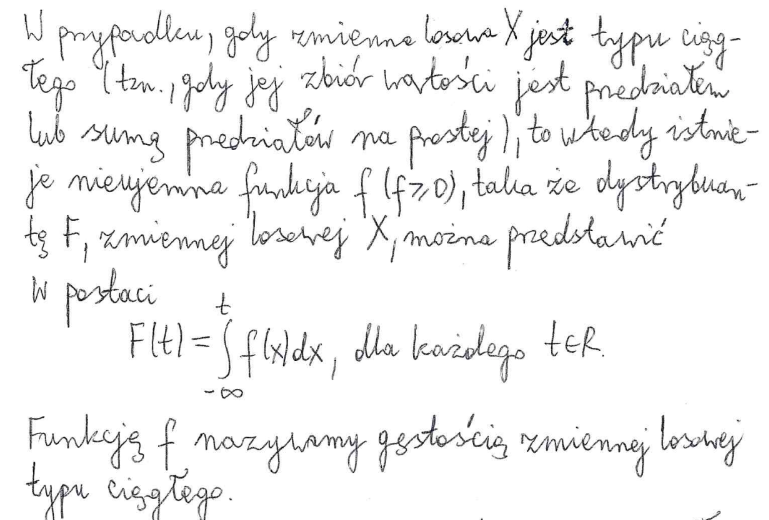 W przypadku, gdy zmienna losowa X jest typu ciąg-
łego (tzn., gdy jej zbiór wartości jest przedziałem
lub sumą przedziałów na prostej), to wtedy istnie-
je nieujemna funkcja f (f≥0), taka że dystrybuan-
tę F, zmiennej losowej X, można przedstawić
w postaci
F(t) = ∫_{-∞}^{t} f(x)dx, dla każdego t∈R.
Funkcję f nazywamy gęstością zmiennej losowej
typu ciągłego.